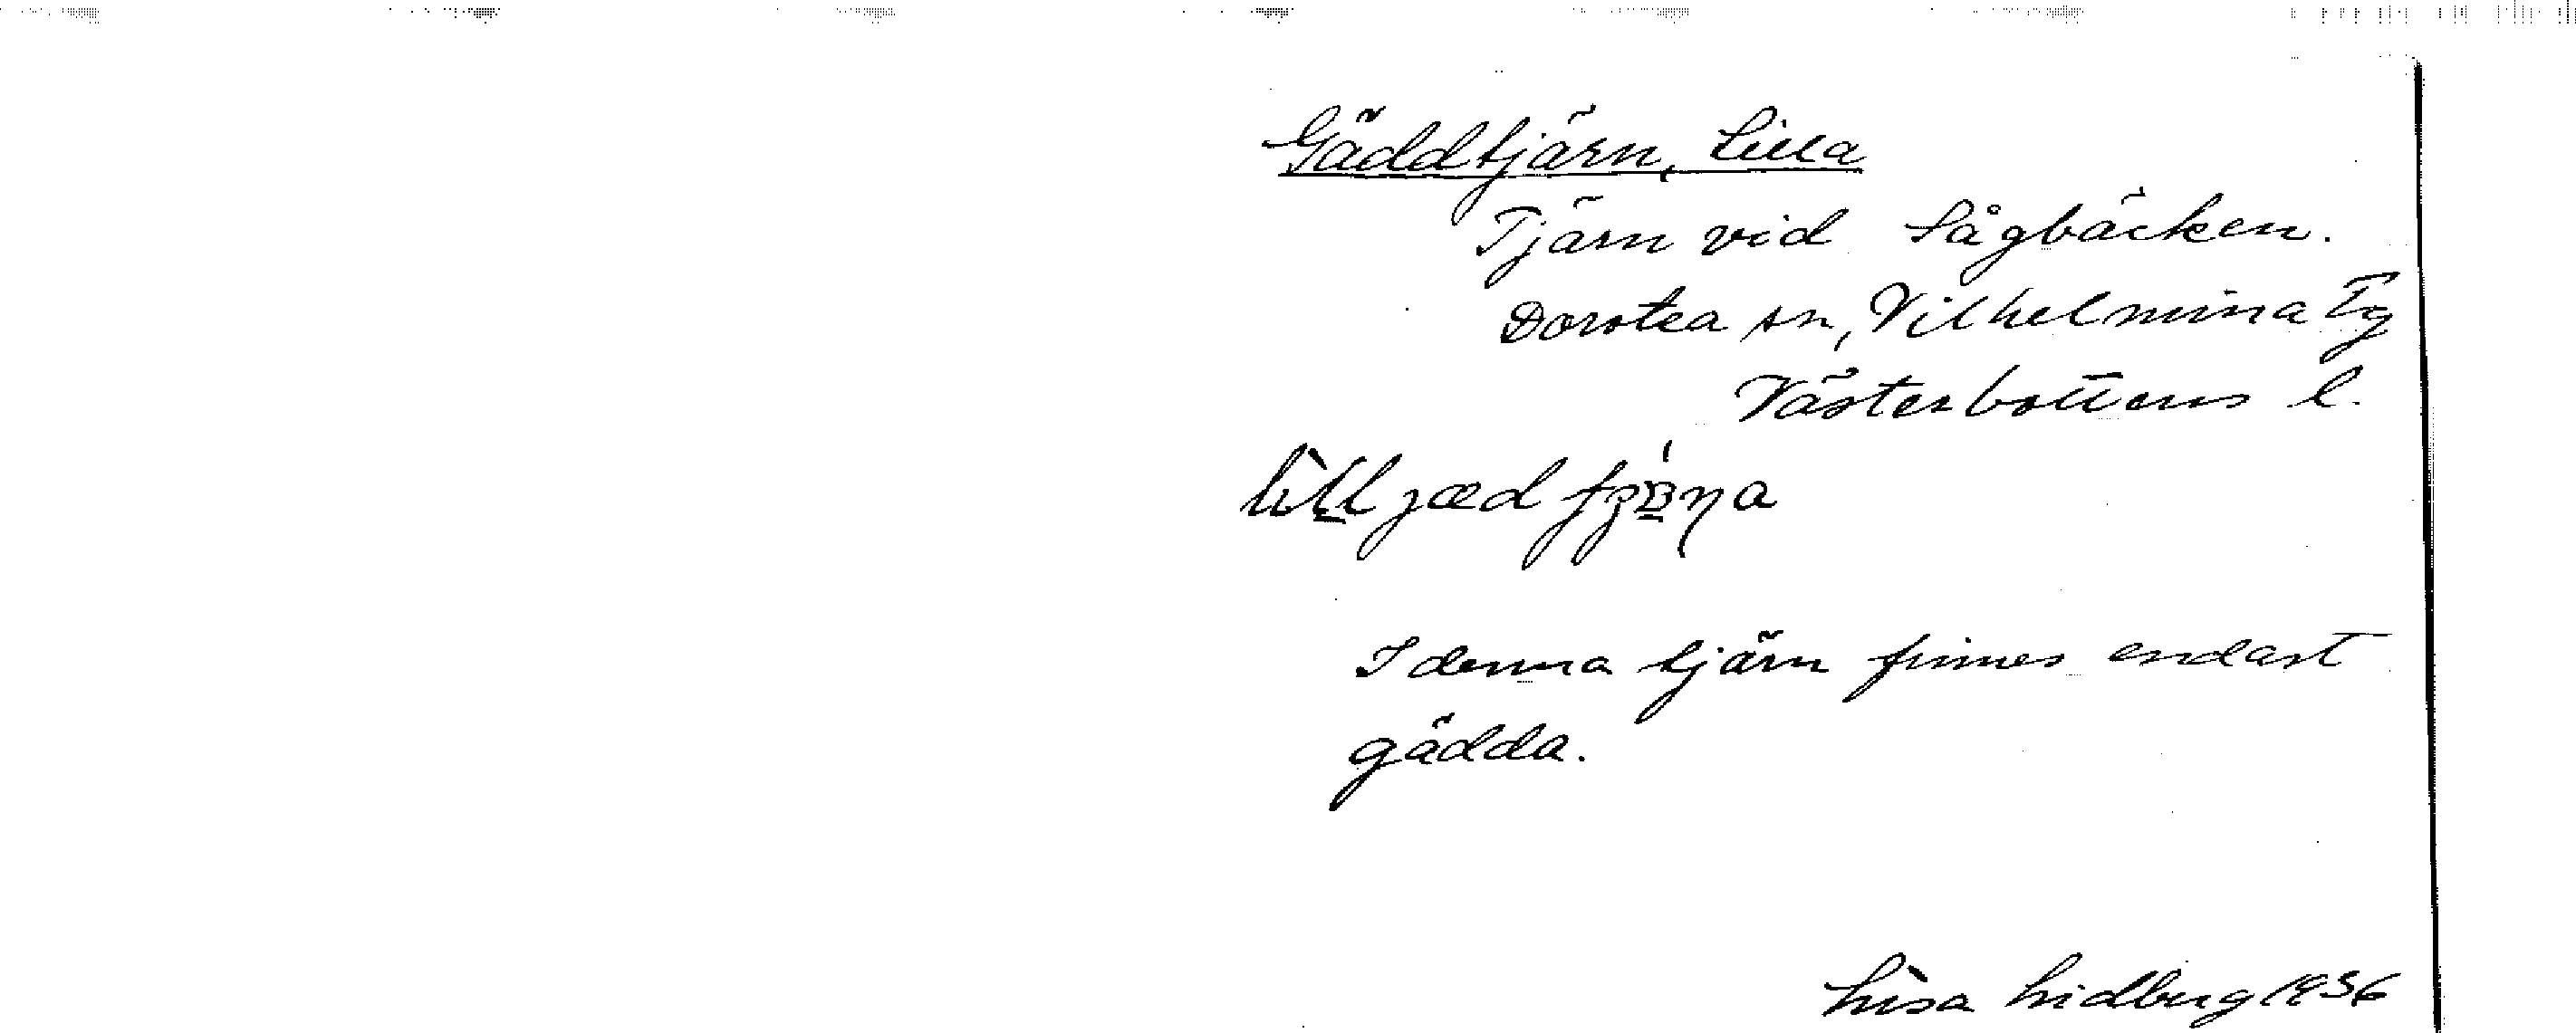 Gäddtjärn, Lilla
Tjärn vid Sågbäcken.
Dorotea sn, Vilhelmina tg
Västerbottens l.
I denna tjärn finnes endast
gädda.
Lisa Lidberg 1936